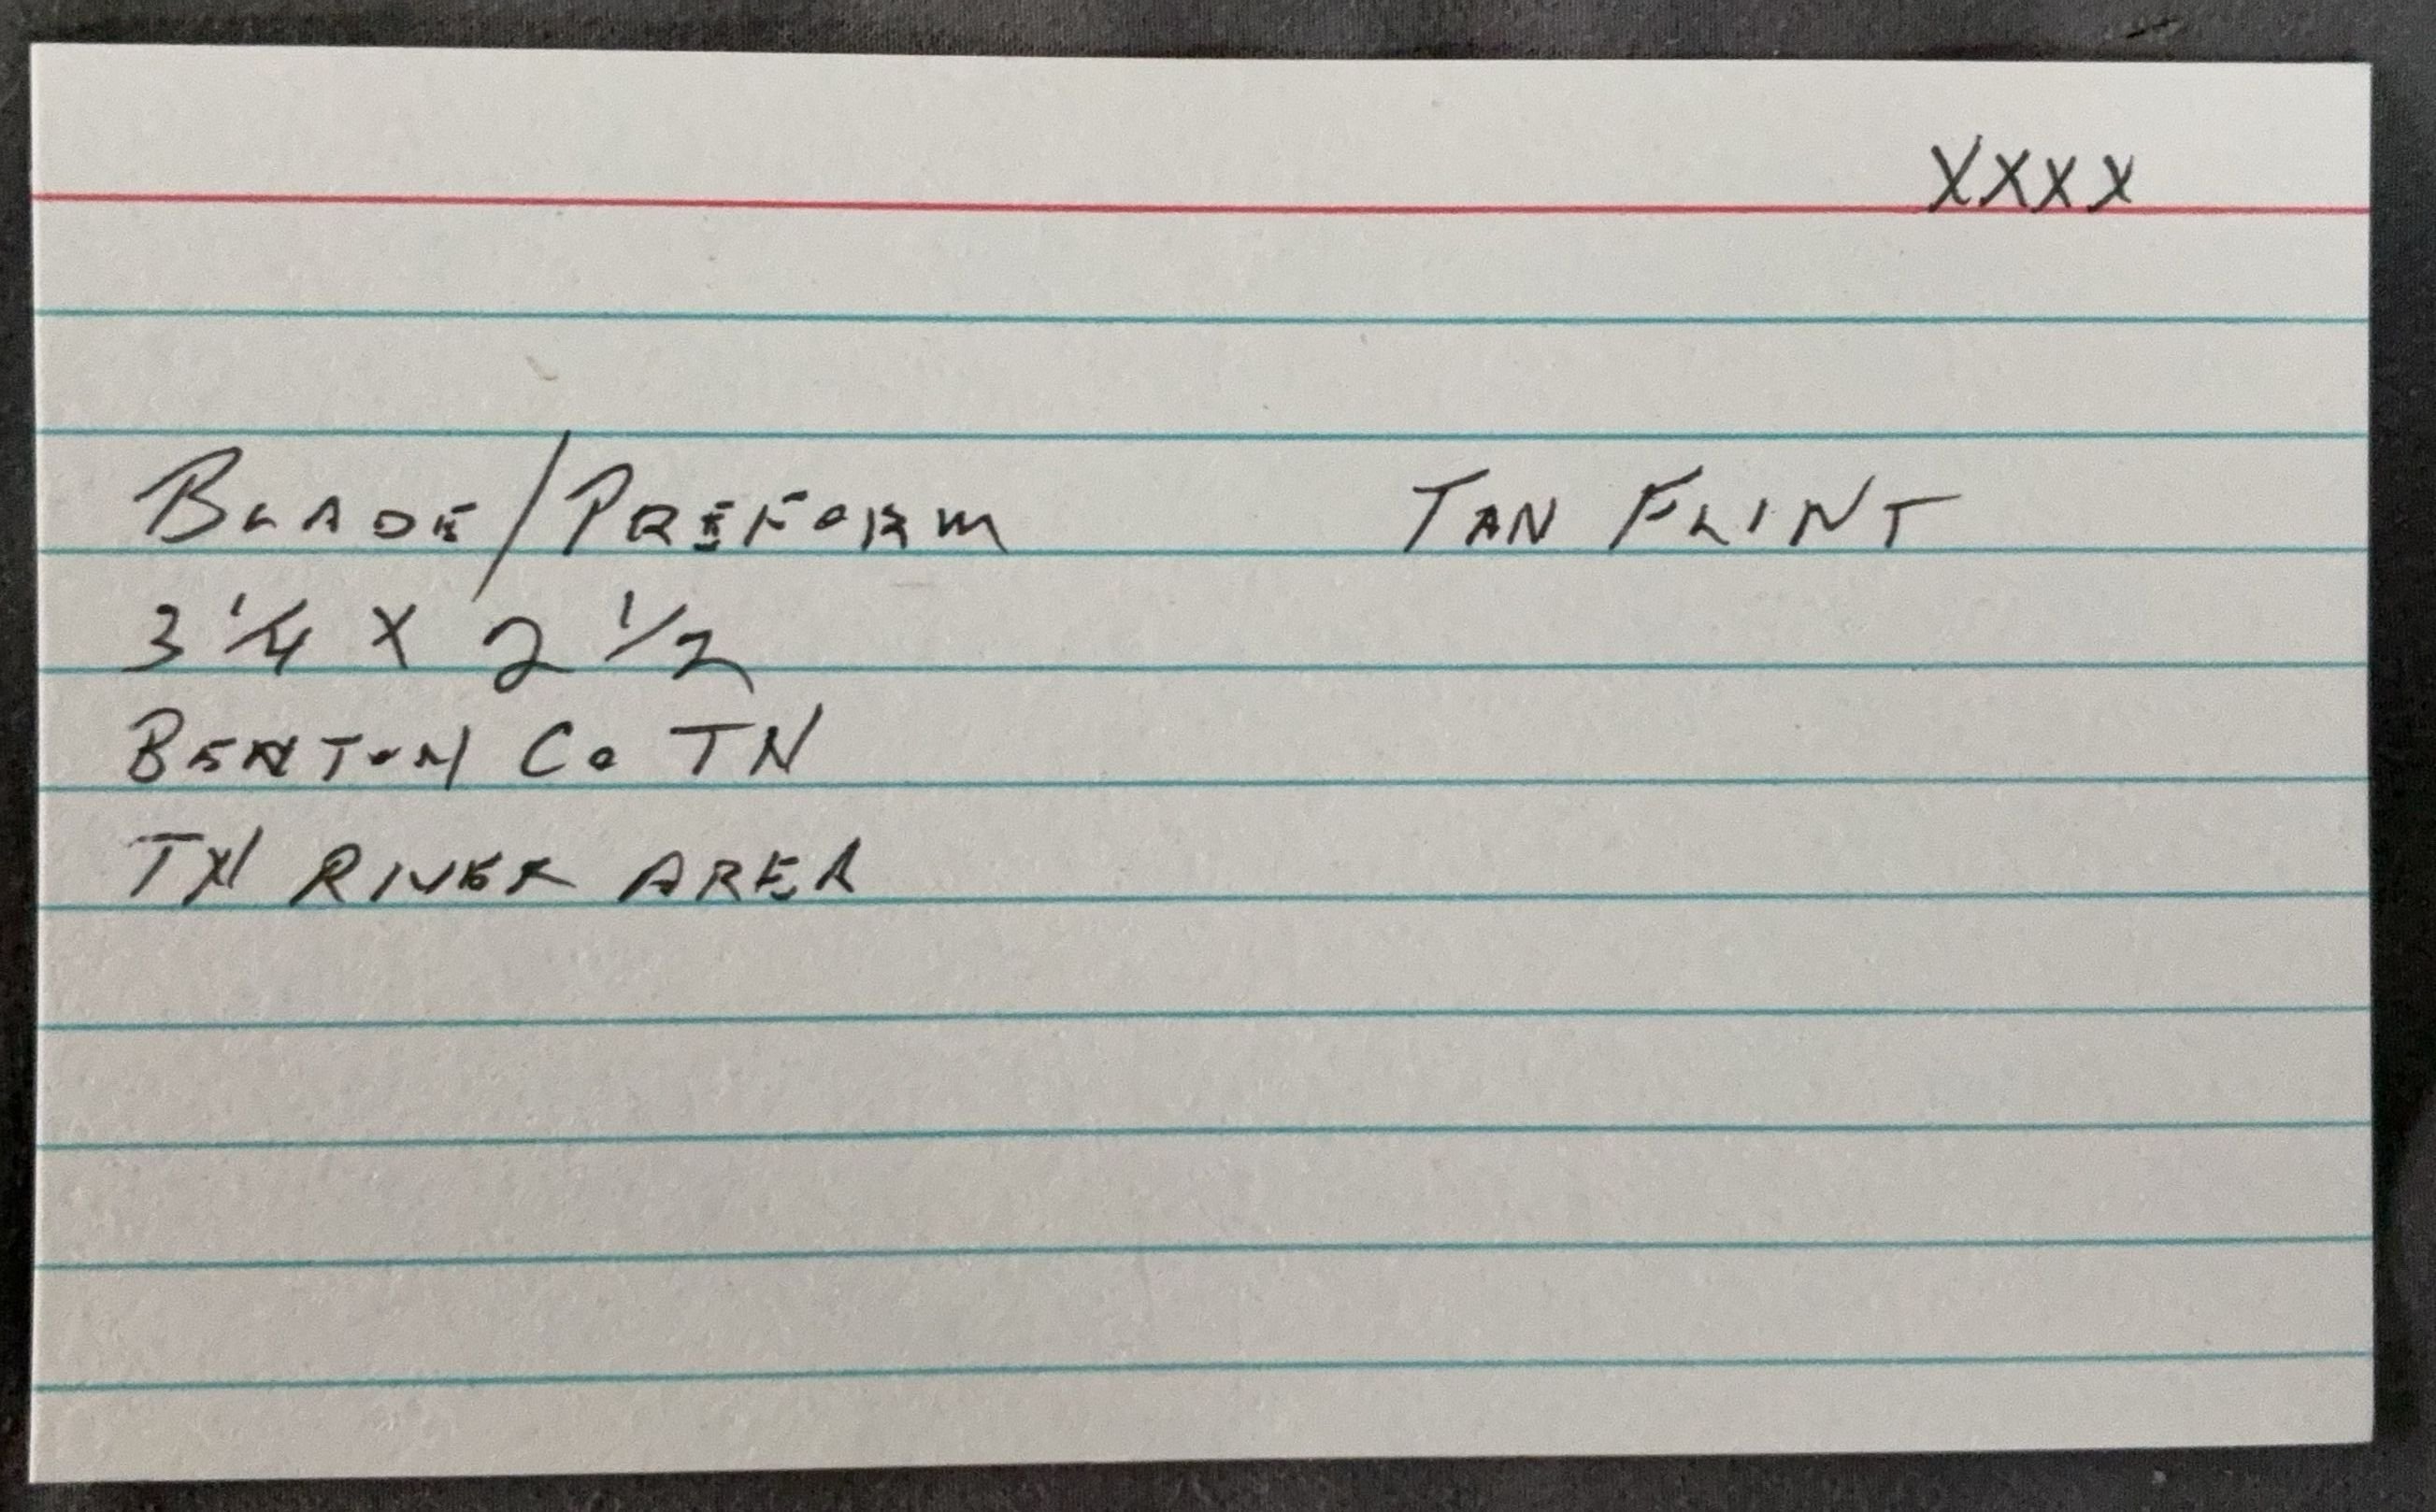 XXXX
BLADE/PREFORM TAN FLINT
3 1/4 X 2 1/2
BENTON Co TN
TN RIVER AREA